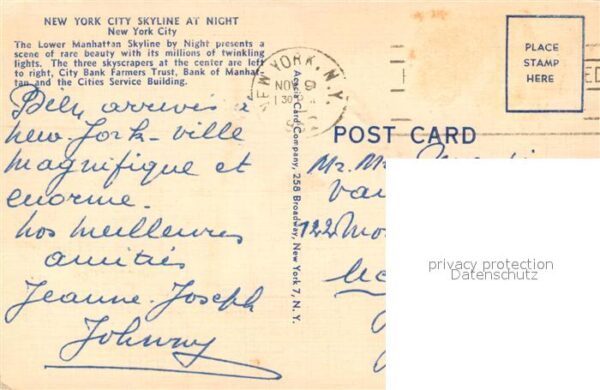 NEW YORK CITY SKYLINE AT NIGHT
New York City
The Lower Manhattan Skyline by Night presents a
scene of rare beauty with its millions of twinkling
lights. The three skyscrapers at the center are left
to right, City Bank Farmers Trust, Bank of Manhat-
tan and the Cities Service Building.
Bien arrivés à
New-York - ville
magnifique et
enorme.
Nos meilleures
amitiés
Jeanne-Joseph
Johnny
Acacia Card Company, 258 Broadway, New York 7, N.Y.
NEW YORK, N.Y.
NOV 9
PLACE
STAMP
HERE
POST CARD
Mr. M
Van
122 Mo
privacy protection
Datenschutz